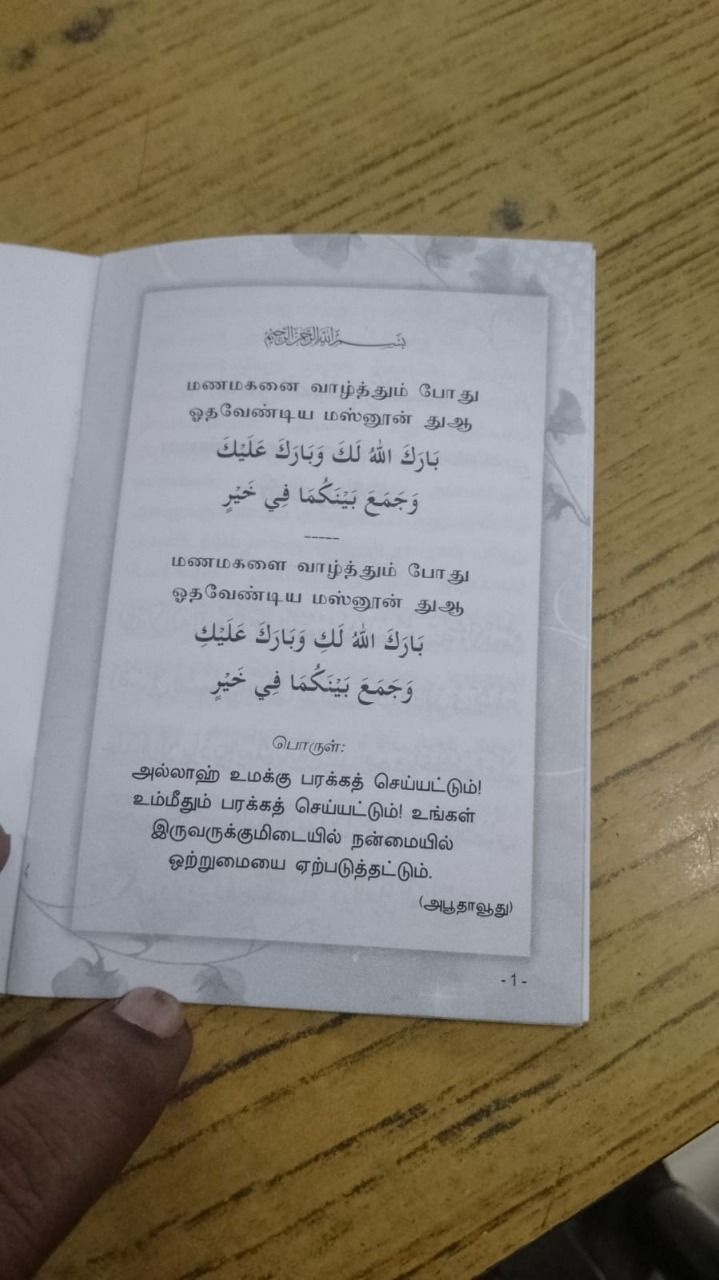 بسم الله الرحمن الرحيم
மணமகனை வாழ்த்தும் போது
ஓதவேண்டிய மஸ்னூன் துஆ
بَارَكَ اللهُ لَكَ وَبَارَكَ عَلَيْكَ
وَجَمَعَ بَيْنَكُمَا فِي خَيْرٍ
-----
மணமகளை வாழ்த்தும் போது
ஓதவேண்டிய மஸ்னூன் துஆ
بَارَكَ اللهُ لَكِ وَبَارَكَ عَلَيْكِ
وَجَمَعَ بَيْنَكُمَا فِي خَيْرٍ
பொருள்:
அல்லாஹ் உமக்கு பரக்கத் செய்யட்டும்!
உம்மீதும் பரக்கத் செய்யட்டும்! உங்கள்
இருவருக்குமிடையில் நன்மையில்
ஒற்றுமையை ஏற்படுத்தட்டும்.
(அபூதாவூது)
- 1 -